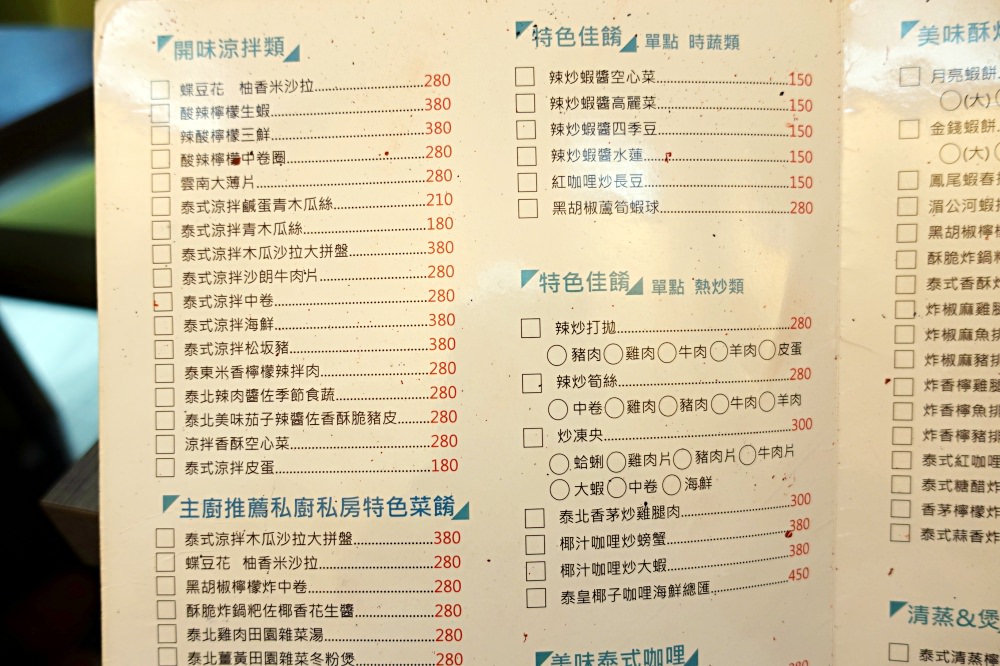 開味涼拌類
蝶豆花 柚香米沙拉 280
酸辣檸檬生蝦 380
辣酸檸檬三鮮 380
酸辣檸檬中卷圈 280
雲南大薄片 280
泰式涼拌鹹蛋青木瓜絲 210
泰式涼拌青木瓜絲 180
泰式涼拌木瓜沙拉大拼盤 380
泰式涼拌沙朗牛肉片 280
泰式涼拌中卷 280
泰式涼拌海鮮 380
泰式涼拌松坂豬 380
泰東米香檸檬辣拌肉 280
泰北辣肉醬佐季節食蔬 280
泰北美味茄子辣醬佐香酥脆豬皮 280
涼拌香酥空心菜 280
泰式涼拌皮蛋 180
主廚推薦私廚私房特色菜餚
泰式涼拌木瓜沙拉大拼盤 380
蝶豆花 柚香米沙拉 280
黑胡椒檸檬炸中卷 280
酥脆炸鍋粑佐椰香花生醬 280
泰北雞肉田園雜菜湯 280
泰北薑黃田園雜菜冬粉煲 280
特色佳餚 單點 時蔬類
辣炒蝦醬空心菜 150
辣炒蝦醬高麗菜 150
辣炒蝦醬四季豆 150
辣炒蝦醬水蓮 150
紅咖哩炒長豆 150
黑胡椒蘆筍蝦球 280
特色佳餚 單點 熱炒類
辣炒打拋 280
豬肉 雞肉 牛肉 羊肉 皮蛋
辣炒筍絲 280
中卷 雞肉 豬肉 牛肉 羊肉
炒凍央 300
蛤蜊 雞肉片 豬肉片 牛肉片
大蝦 中卷 海鮮
泰北香茅炒雞腿肉 300
椰汁咖哩炒螃蟹 380
椰汁咖哩炒大蝦 380
泰皇椰子咖哩海鮮總匯 450
美味泰式咖哩
美味酥
月亮蝦餅
(大)
金錢蝦餅
(大)
鳳尾蝦春
湄公河蝦
黑胡椒檸
酥脆炸鍋
泰式香酥
炸椒麻雞
炸椒麻魚
炸椒麻豬
炸香檸雞
炸香檸魚
炸香檸豬
泰式紅咖哩
泰式糖醋炸
香茅檸檬炸
泰式蒜香炸
清蒸&煲
泰式清蒸檸